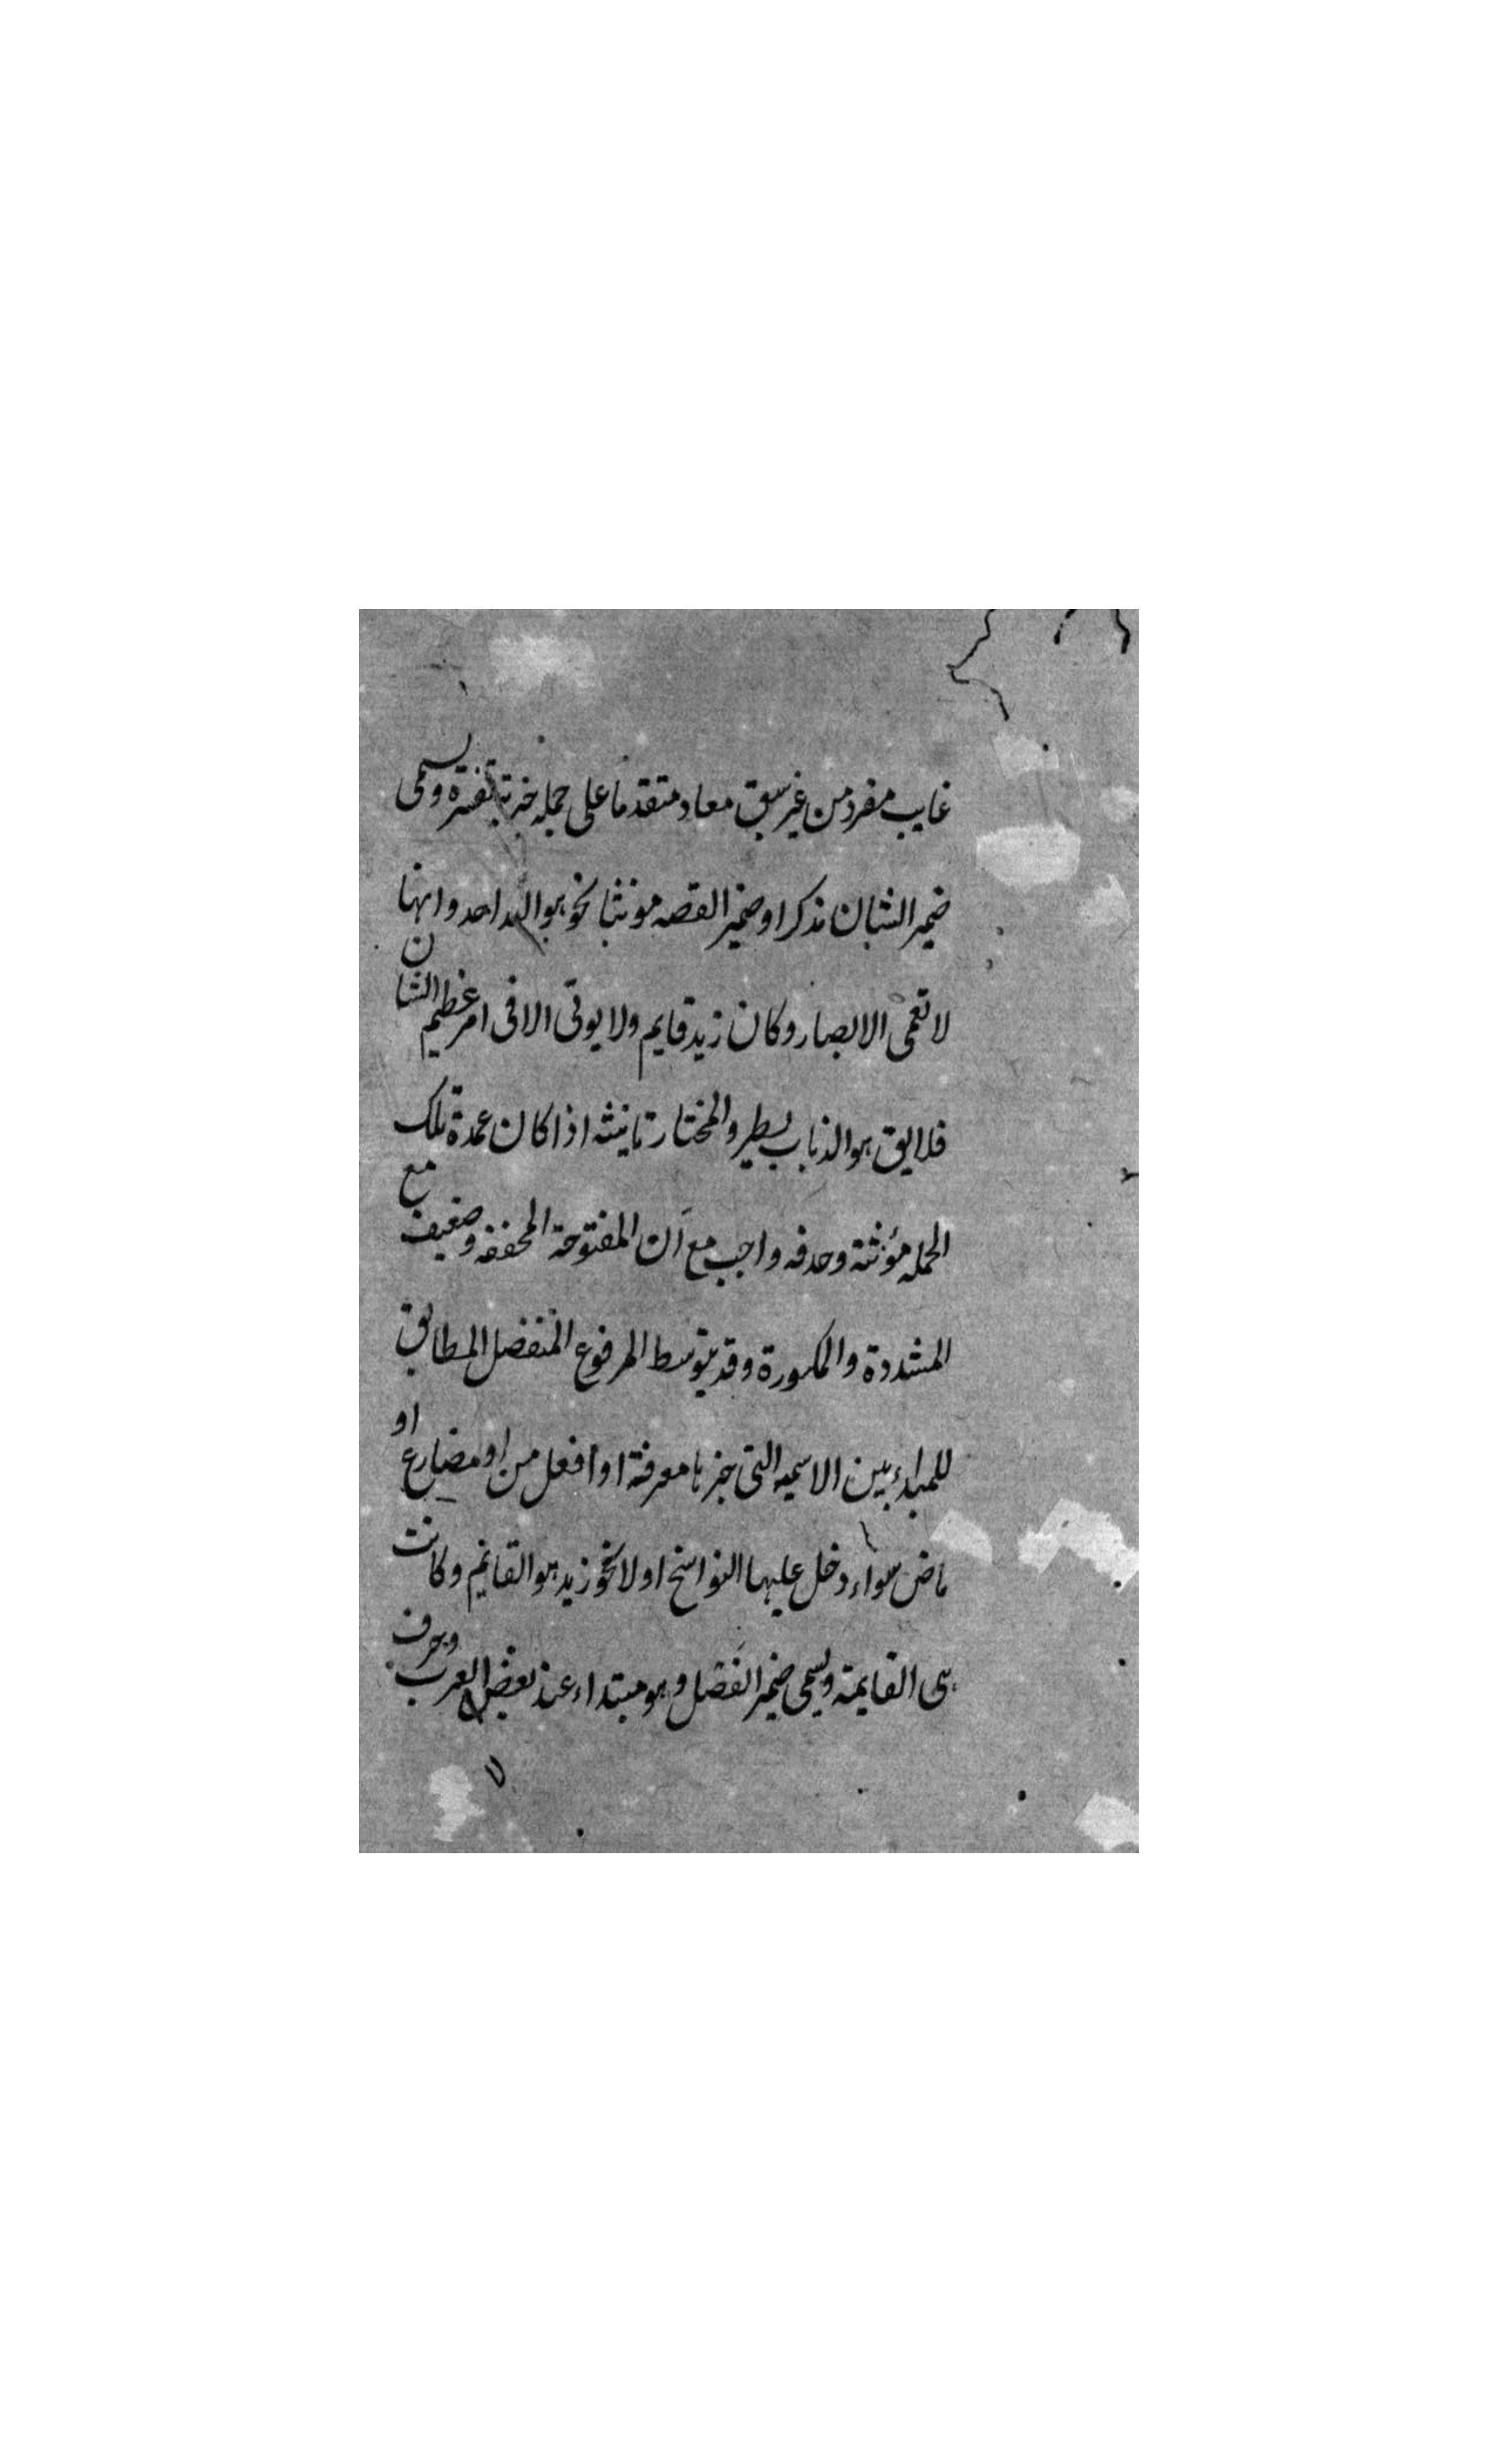 غايب مفرد من غير سبق معاد متقدما على جمله خبرية تفسره ويسمى
ضمير الشان مذكرا وضمير القصه مونثا نحو هو الله احد وانها
لا تعمى الابصار وكان زيد قايم ولا يوتى الا فى امر عظيم الشان
فلا يق هو الذباب يطير والمختار تانيثه اذا كان عمدة تلك
الجمله مؤنثة وحذفه واجب مع ان المفتوحة المخففه وضعيف مع
المشددة والمكسورة وقد يتوسط المرفوع المنفصل المطابق
للمبتداء بين الاسميه التى خبرها معرفة او افعل من او مضارع او
ماض سواء دخل عليها النواسخ او لا نحو زيد هو القائم وكانت
هى القايمة ويسمى ضمير الفصل وهو مبتداء عند بعض العرب وحرف